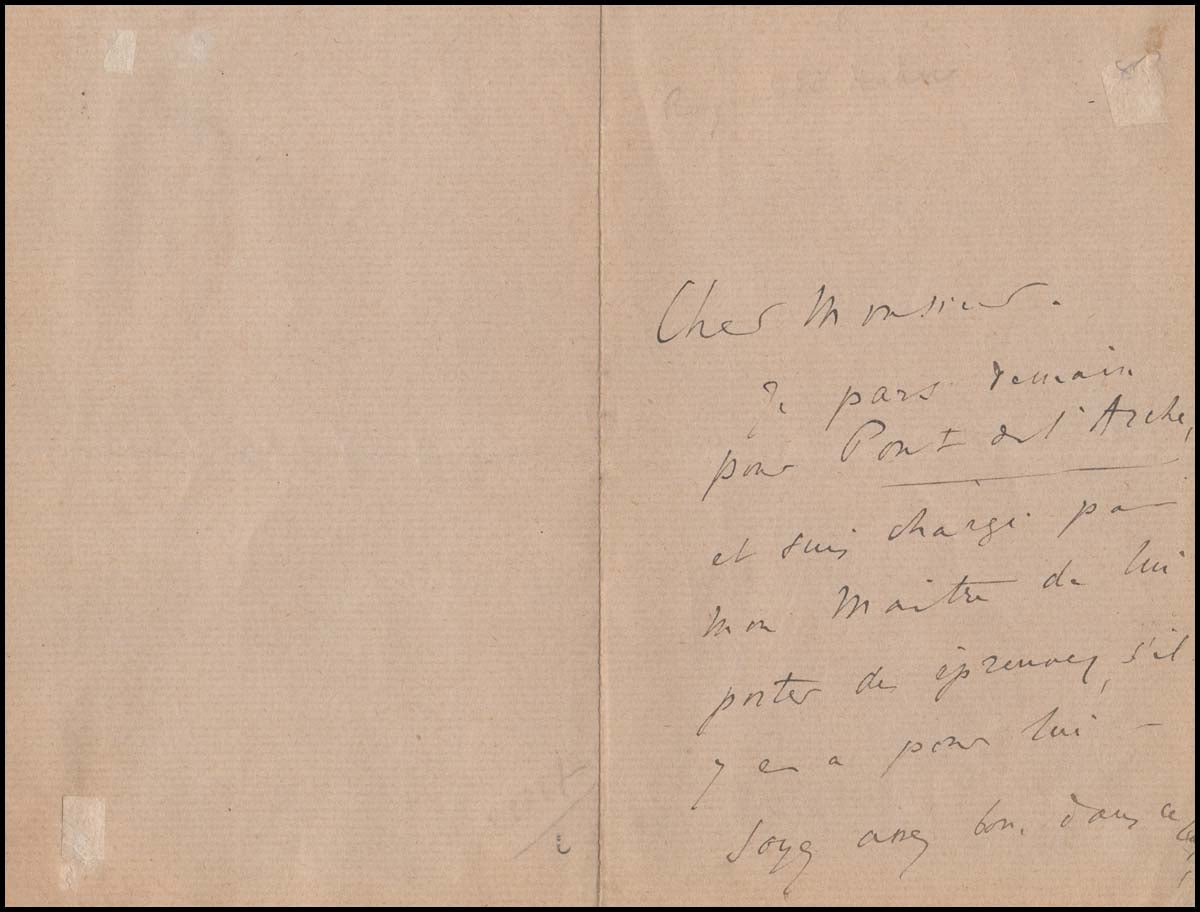 Cher Monsieur.
Je pars demain
pour Pont de l'Arche,
et suis chargé par
mon Maître de lui
porter des épreuves, s'il
y en a pour lui —
Soyez assez bon, dans ce cas,